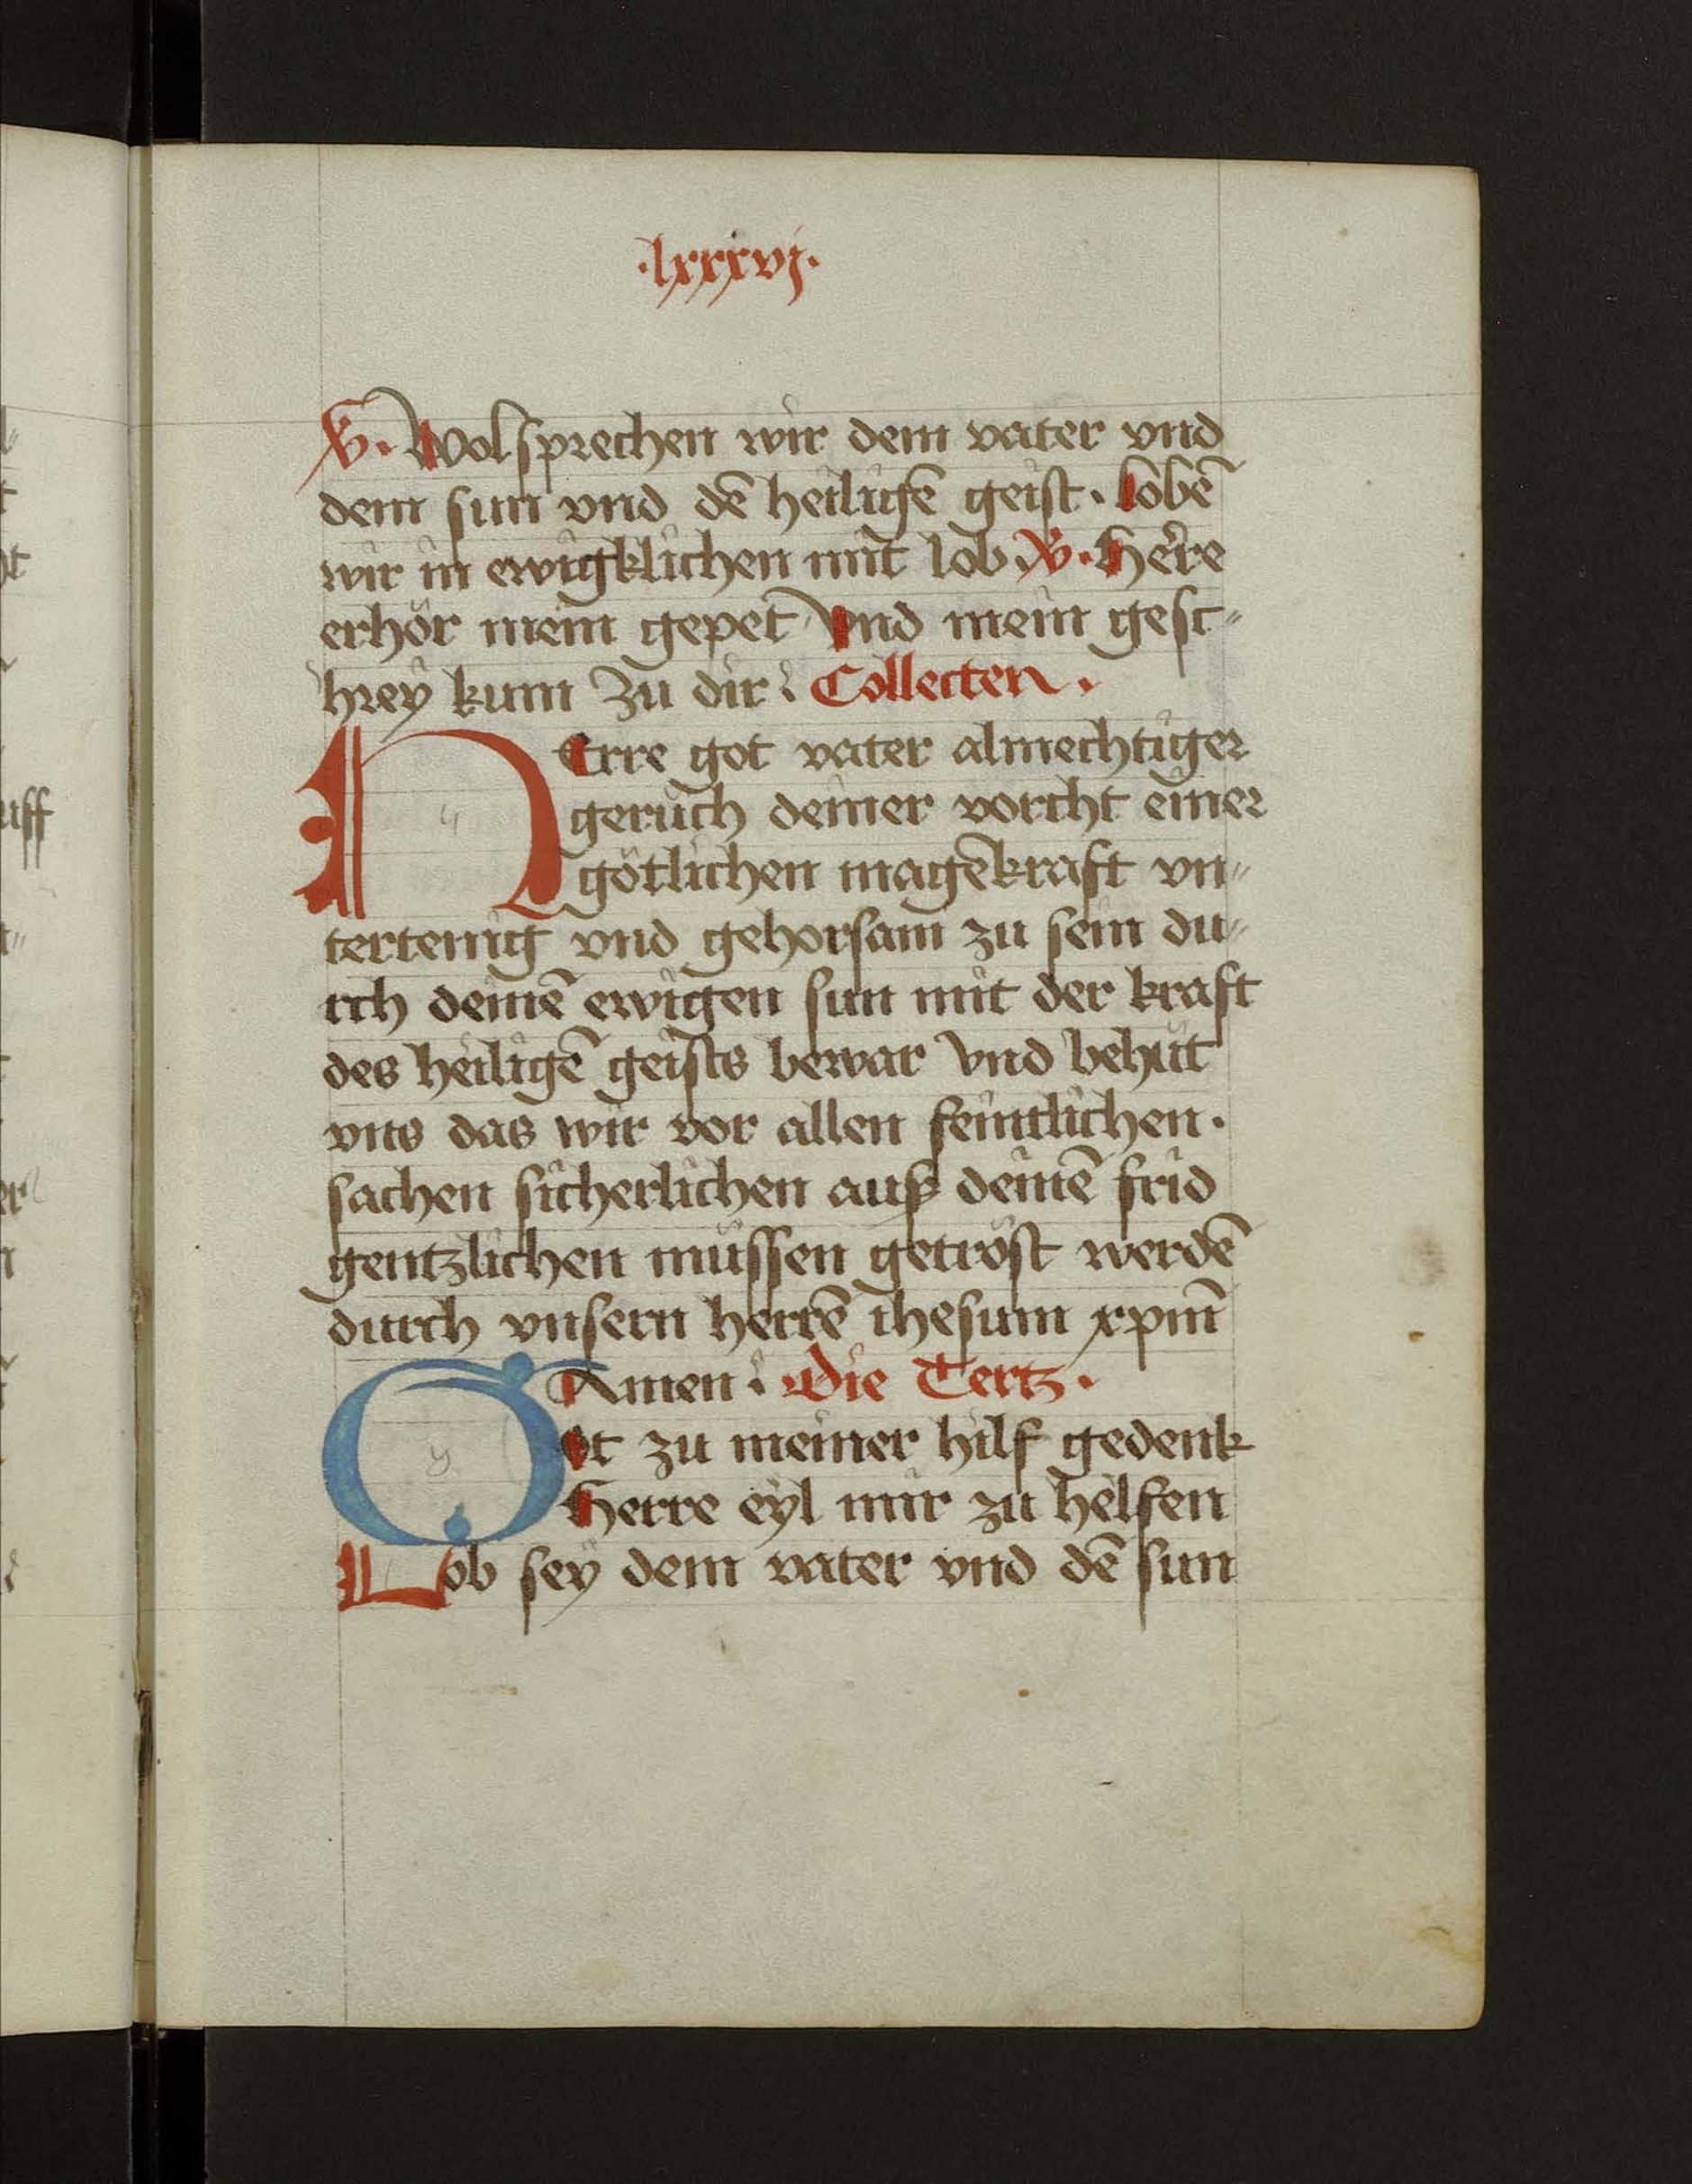 ·lxxxvj·
V. Wolsprechen wir dem vater vnd
dem sun vnd dē heiligē geist· lobē
wir in ewigklichen mit lob· V. Herre
erhör mein gepet Vnd mein gesc-
hrey kum zu dir: Collecten·
HErre got vater almechtiger
geruch deiner vorcht einer
götlichen magēkraft vn-
tertenig vnd gehorsam zu sein du-
rch deinē ewigen sun mit der kraft
des heiligē geists bewar vnd behüt
vns das wir vor allen feintlichen·
sachen sicherlichen auß deinē frid
gentzlichen müssen getröst werdē
durch vnsern herrē ihesum xpm̄
Amen: Die Tertz·
Got zu meiner hilf gedenk
Herre eyl mir zu helfen
Lob sey dem vater vnd dē sun